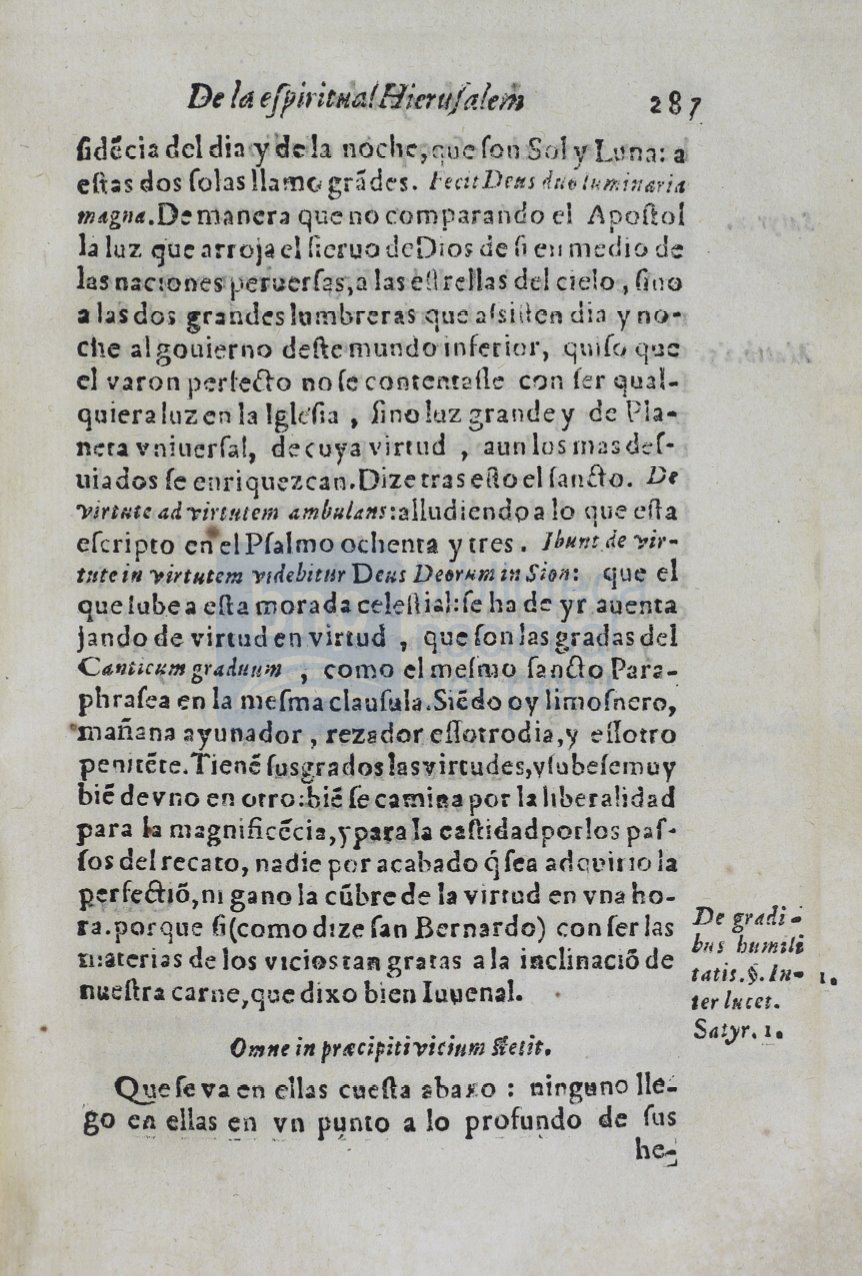 De la eſpiritual Hieruſalem 287
ſidẽcia del dia y de la noche, que ſon Sol y Luna: a
eſtas dos ſolas llamo grãdes. Fecit Deus duo luminaria
magna. De manera que no comparando el Apoſtol
la luz que arroja el ſieruo de Dios de ſi en medio de
las naciones peruerſas, a las eſtrellas del cielo, ſino
a las dos grandes lumbreras que aſsiſten dia y no-
che al gouierno deſte mundo inferior, quiſo que
el varon perfecto no ſe contentaſſe con ſer qual-
quiera luz en la Igleſia, ſino luz grande y de Pla-
neta vniuerſal, de cuya virtud, aun los mas deſ-
uiados ſe enriquezcan. Dize tras eſto el ſancto. De
virtute ad virtutem ambulans: alludiendo a lo que eſta
eſcripto en el Pſalmo ochenta y tres. Ibunt de vir-
tute in virtutem videbitur Deus Deorum in Sion: que el
que ſube a eſta morada celeſtial: ſe ha de yr auenta
jando de virtud en virtud, que ſon las gradas del
Canticum graduum, como el meſmo ſancto Para-
phraſea en la meſma clauſula. Siẽdo oy limoſnero,
mañana ayunador, rezador eſſotro dia, y eſſotro
penitẽte. Tienẽ ſus grados las virtudes, y ſubeſe muy
biẽ de vno en otro: biẽ ſe camina por la liberalidad
para la magnificẽcia, y para la caſtidad por los paſ-
ſos del recato, nadie por acabado q̃ ſea adquirio la
perfectiõ, ni gano la cũbre de la virtud en vna ho-
ra. porque ſi (como dize ſan Bernardo) con ſer las
materias de los vicios tan gratas a la inclinaciõ de
nueſtra carne, que dixo bien Iuuenal.
De gradi-
bus humili
tatis. §. In-
ter lucet.
1.
Satyr. 1.
Omne in præcipiti vicium ſtetit.
Que ſe va en ellas cueſta abaxo: ninguno lle-
go en ellas en vn punto a lo profundo de ſus
he-